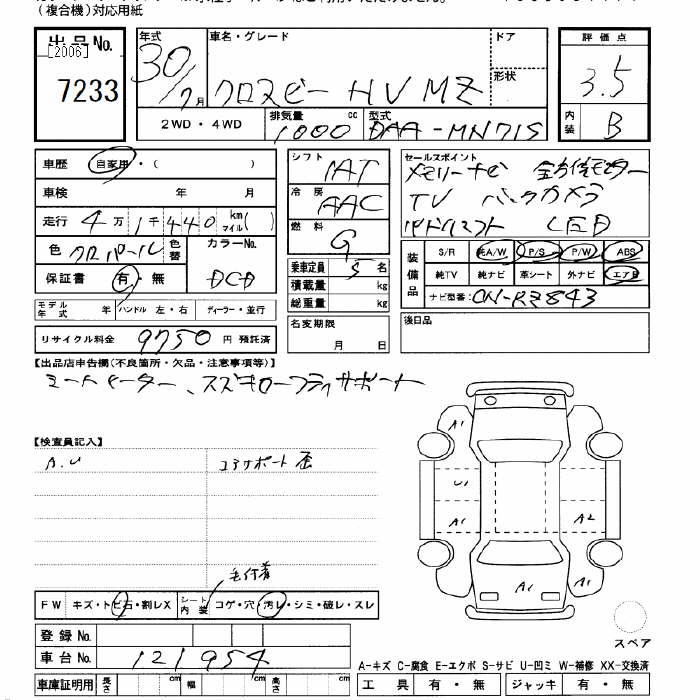 (複合機)対応用紙
出品No.
[2006]
7233
年式
30/7月
車名・グレード
クロスビー HV MZ
ドア
形状
評価点
3.5
内装
B
2WD・4WD
排気量 cc
1000
型式
DAA-MN71S
車歴 自家用・( )
車検 年 月
走行 4万1千440 km マイル( )
色 クロパール 色替
カラーNo.
DCD
保証書 有・無
モデル年式 年 ハンドル 左・右 ディーラー・並行
リサイクル料金 9750 円 預託済
シフト
IAT
冷房
AAC
燃料
G
乗車定員 5 名
積載量 kg
総重量 kg
名変期限
月 日
セールスポイント
メモリーナビ 全方位モニター
TV バックカメラ
LED
装備品
S/R 純A/W P/S P/W ABS
純TV 純ナビ 革シート 外ナビ エアB
ナビ型番: CN-RZ843
後日品
【出品店申告欄(不良箇所・欠品・注意事項等)】
シートヒーター、スズキセーフティサポート
【検査員記入】
A.U
コアサポート歪
毛付着
FW キズ・トビ石・割レX
シート内装 コゲ・穴・汚レ・シミ・破レ・スレ
登録No.
車台No. 121954
車庫証明用 長さ cm 幅 cm 高さ cm
A1
U1
A1
A2
A1
A1
スペア
A-キズ C-腐食 E-エクボ S-サビ U-凹ミ W-補修 XX-交換済
工具 有・無 ジャッキ 有・無